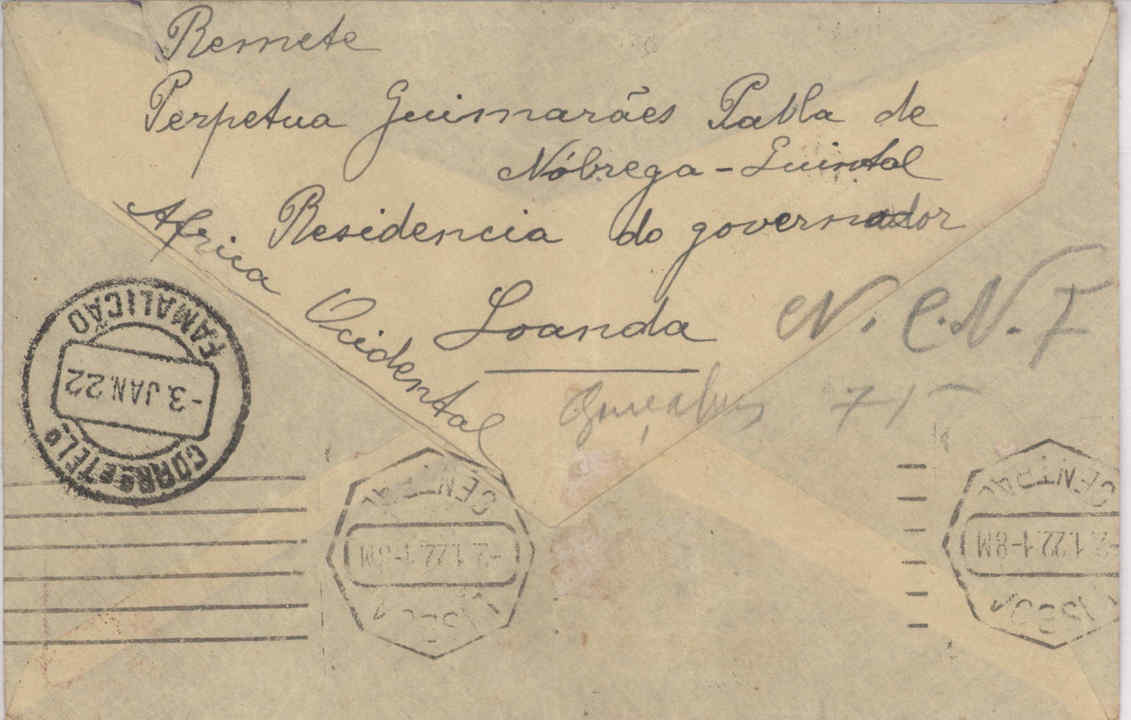 Remete
Perpetua Guimarães Pabla de
Nóbrega-Quintal
Residencia do governador
Africa Ocidental
Loanda
N. C. N. F
Gonçalves 715
FAMALICÃO
-3. JAN. 22
CORR. E TEL.
CENTRAL
-2.1.22.1-8M
LISBOA
CENTRAL
-2.1.22.1-8M
LISBOA